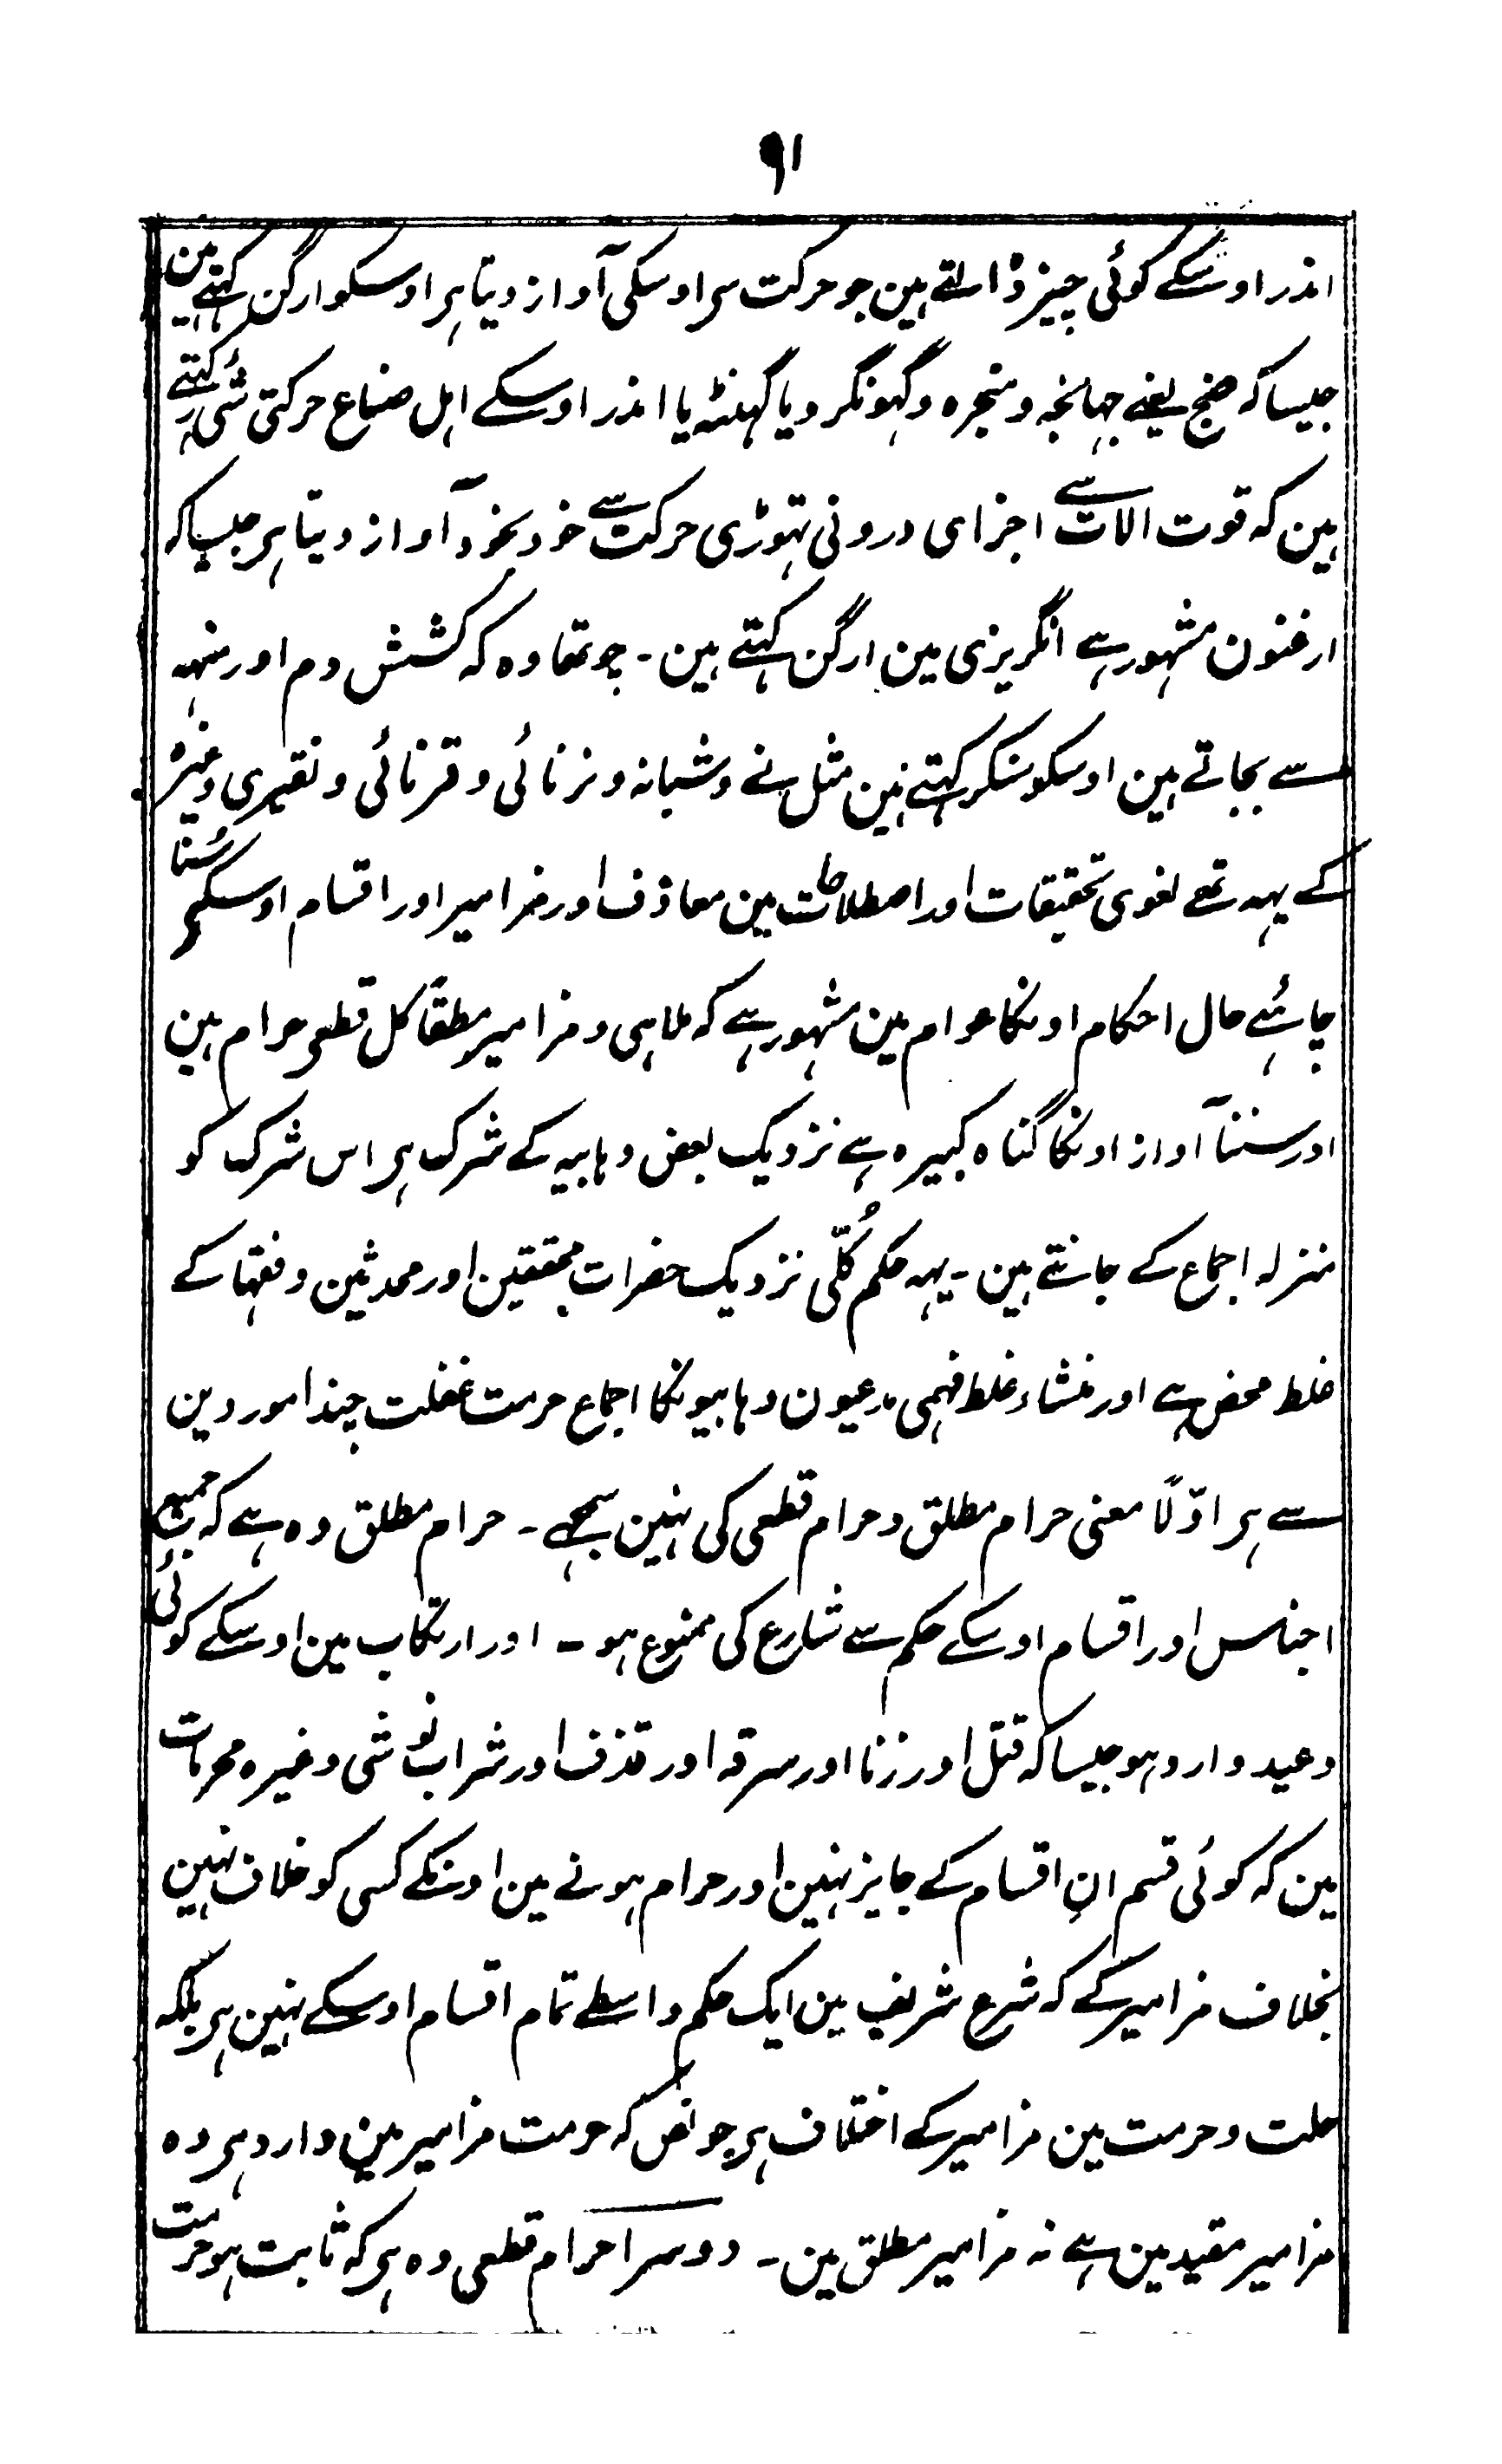 ۹۱
اندر اوسکے کوئی چیز ڈالتے ہین جو حرکت سی اوسکی آواز دیتا ہی اوسکو ارگن کہتے ہین
جیسا کہ صنج یعنے جہانجہ و منجرہ و گہونگرو یا گہنٹہ یا اندر اوسکے اہل صناع حرکتی شی رکہتے
ہین کہ قوت الات سے اجزای درونی تہوڑی حرکت سے خود بخود آواز دیتا ہی جیسا کہ
ارغنون مشہور ہے انگریزی مین ارگن کہتے ہین ۔ چوتھا وہ کہ کشش دم اور منہہ
سے بجاتے ہین اوسکو سنکر کہتے ہین مثل نے و شبانہ و نرنائی و قرنائی و نفیری وغیرہ
کے یہہ تھے لغوی تحقیقات اور اصطلاحات مین معازف اور مزامیر اور اقسام اوسکے سُننا
چاہئے حال احکام اونکا عوام مین مشہور ہے کہ ملاہی و مزامیر مطلقًا کل قطعی حرام ہین
اور سننا آواز اونکا گناہ کبیرہ ہے نزدیک بعض وہابیہ کے شرک ہی اس شرک کو
منزلہ اجماع کے جانتے ہین ۔ یہہ حکم کُلّی نزدیک حضرات محققین اور محدثین و فقہا کے
غلط محض ہے اور منشاء غلط فہمی مدعیون وہابیونکا اجماع حرمت غفلت چند امور دین
سے ہی اوّلًا معنی حرام مطلق و حرام قطعی کی نہین سمجہے ۔ حرام مطلق وہ ہے کہ جمیع
اجناس اور اقسام اوسکے حکم سے شارع کی ممنوع ہو ۔ اور ارتکاب مین اوسکے کوئی
وعید وارد ہو جیسا کہ قتل اور زنا اور سرقہ اور قذف اور شراب نوشی وغیرہ محرمات
مین کہ کوئی قسم انِ اقسام کے جایز نہین اور حرام ہونے مین اونکے کسی کو خلاف نہین
بخلاف مزامیر کے کہ شرع شریف مین ایک حکم واسطے تمام اقسام اوسکے نہین ہی بلکہ
حلت و حرمت مین مزامیر کے اختلاف ہی جو نص کہ حرمت مزامیر مین وارد ہی وہ
مزامیر مقید مین ہے نہ مزامیر مطلق مین ۔ دوسرا حرام قطعی وہ ہی کہ ثابت ہو حرمت